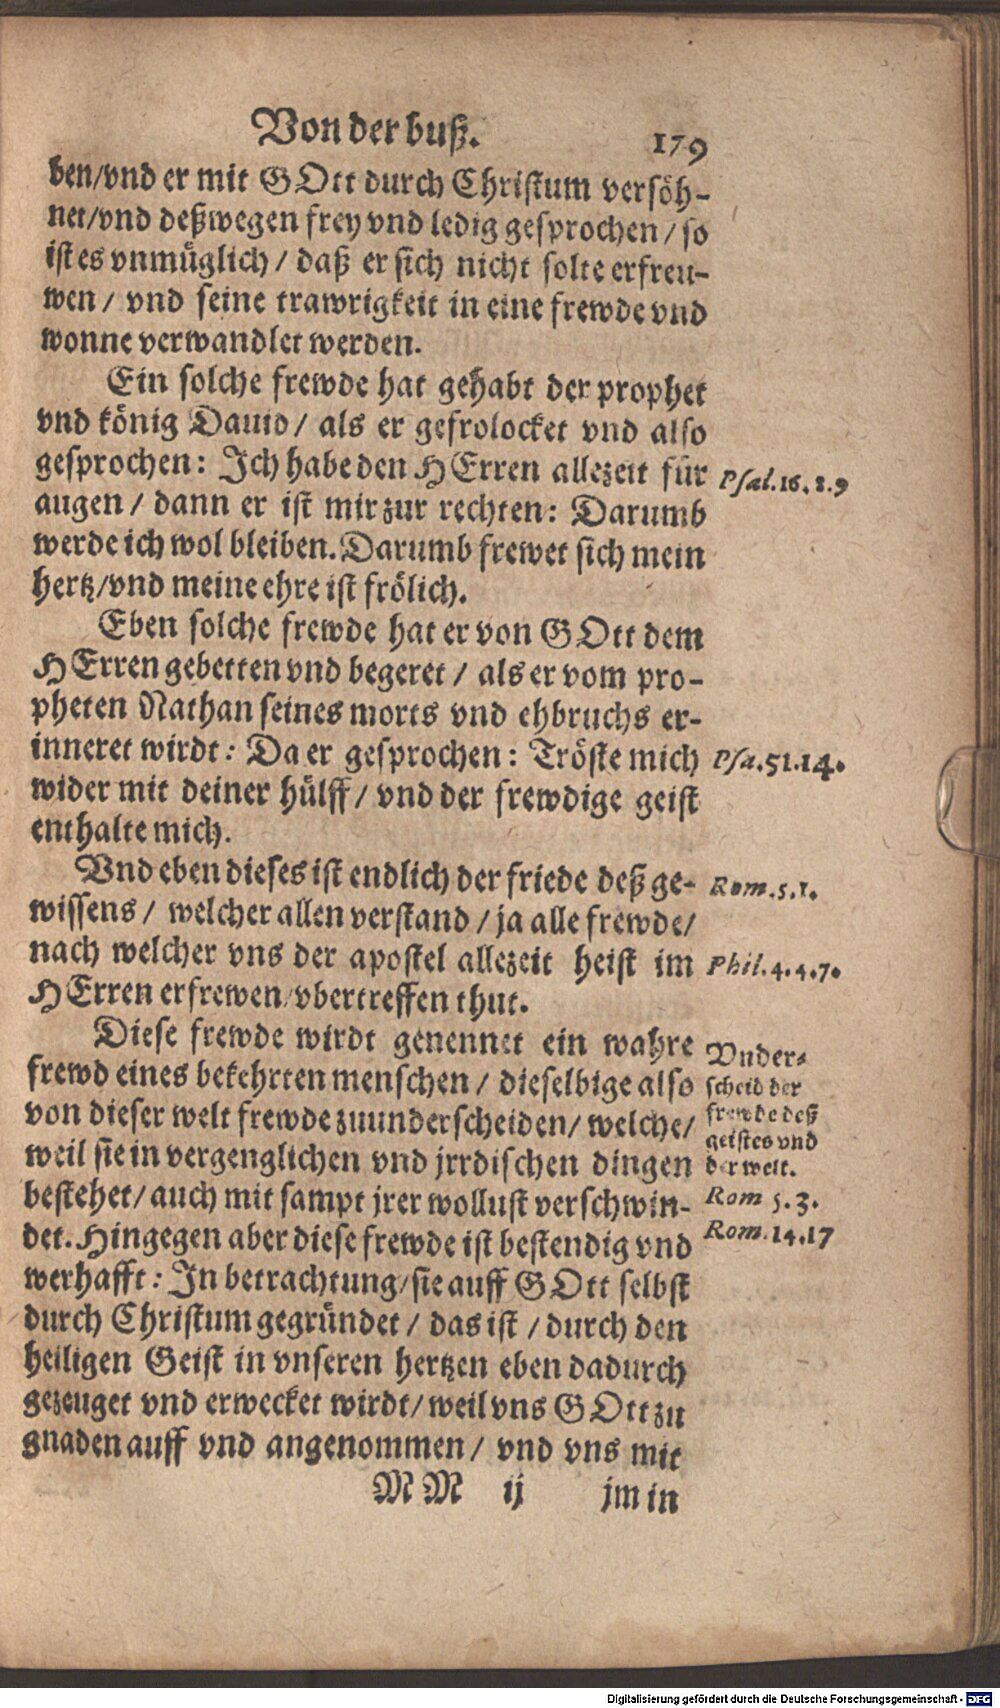 Von der buß. 179
ben/vnd er mit GOtt durch Christum versöh-
net/vnd deßwegen frey vnd ledig gesprochen/ so
ist es vnmüglich/ daß er sich nicht solte erfreu-
wen/ vnd seine trawrigkeit in eine frewde vnd
wonne verwandlet werden.
Ein solche frewde hat gehabt der prophet
vnd könig Dauid/ als er gefrolocket vnd also
gesprochen: Ich habe den HErren allezeit für
Psal.16.8.9
augen/ dann er ist mir zur rechten: Darumb
werde ich wol bleiben. Darumb frewet sich mein
hertz/vnd meine ehre ist frölich.
Eben solche frewde hat er von GOtt dem
HErren gebetten vnd begeret/ als er vom pro-
pheten Nathan seines morts vnd ehbruchs er-
inneret wirdt: Da er gesprochen: Tröste mich
Psa.51.14.
wider mit deiner hülff/ vnd der frewdige geist
enthalte mich.
Vnd eben dieses ist endlich der friede deß ge-
Rom.5.1.
wissens/ welcher allen verstand/ ja alle frewde/
nach welcher vns der apostel allezeit heist im
Phil.4.4.7.
HErren erfrewen/vbertreffen thut.
Diese frewde wirdt genennet ein wahre
frewd eines bekehrten menschen/ dieselbige also
von dieser welt frewde zuunderscheiden/ welche/
weil sie in vergenglichen vnd jrrdischen dingen
bestehet/ auch mit sampt jrer wollust verschwin-
det. Hingegen aber diese frewde ist bestendig vnd
werhafft: In betrachtung/sie auff GOtt selbst
durch Christum gegründet/ das ist/ durch den
heiligen Geist in vnseren hertzen eben dadurch
gezeuget vnd erwecket wirdt/ weil vns GOtt zu
gnaden auff vnd angenommen/ vnd vns mit
Vnder-
scheid der
frewde deß
geistes vnd
der welt.
Rom 5.3.
Rom.14.17
MM ij jm in
Digitalisierung gefördert durch die Deutsche Forschungsgemeinschaft - DFG